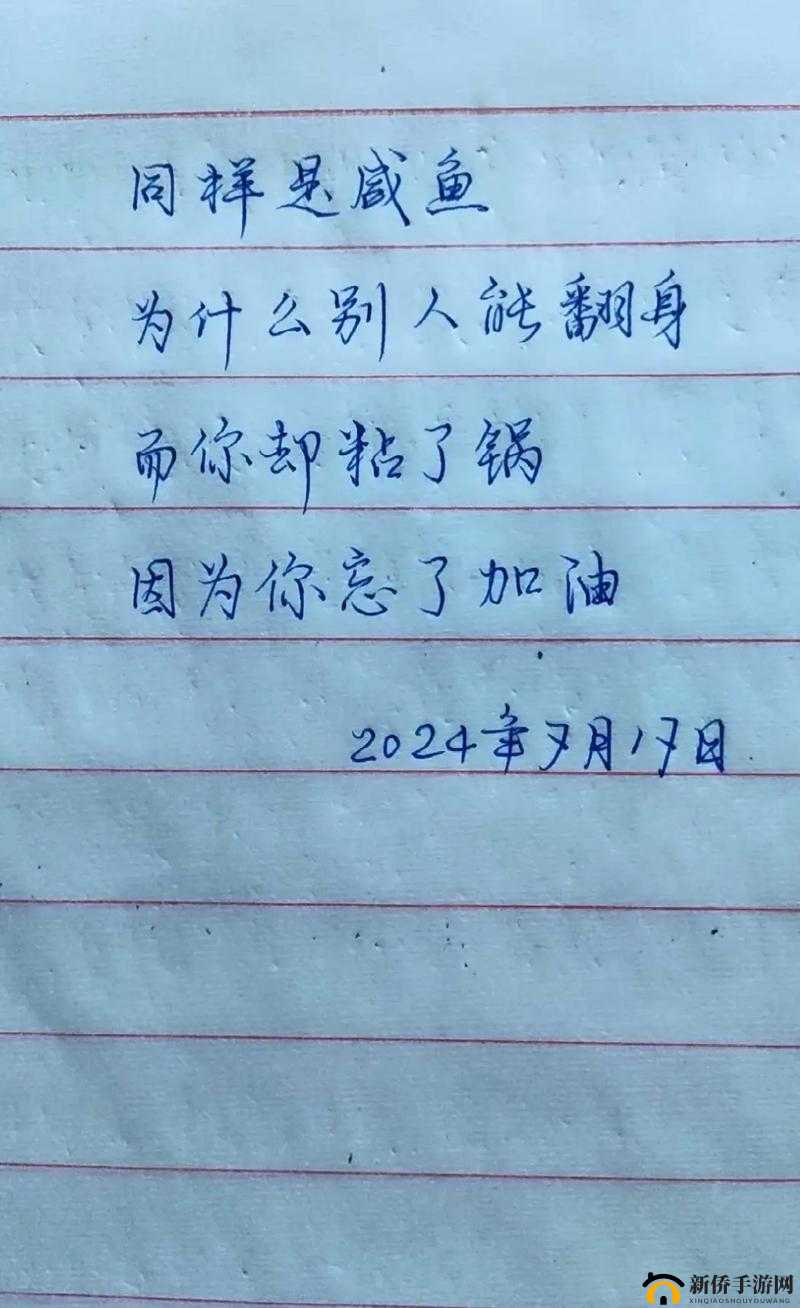 同样是咸鱼
为什么别人能翻身
而你却粘了锅
因为你忘了加油
2024年7月17日
新侨手游网
XINQIAOSHOUYOUWANG